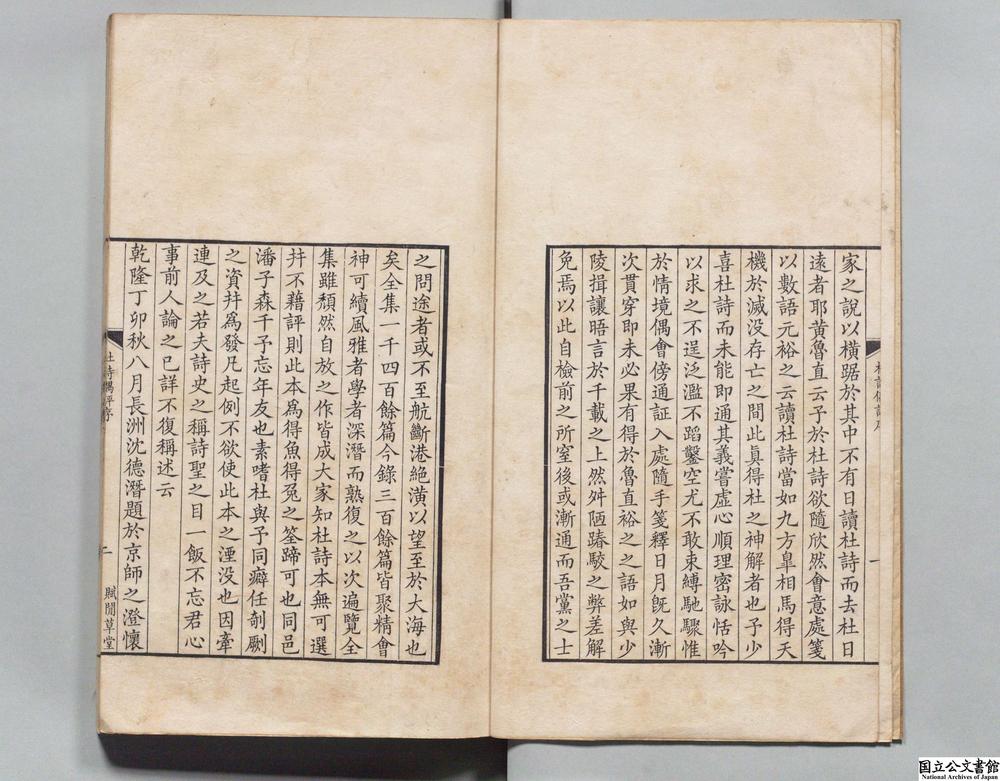 家之說以橫踞於其中不有日讀杜詩而去杜日
遠者耶黃魯直云予於杜詩欲隨欣然會意處箋
以數語元裕之云讀杜詩當如九方臯相馬得天
機於滅没存亡之間此眞得杜之神解者也予少
喜杜詩而未能即通其義嘗虛心順理密詠恬吟
以求之不逞泛濫不蹈鑿空尤不敢束縛馳驟惟
於情境偶會傍通証入處隨手箋釋日月旣久漸
次貫穿即未必果有得於魯直裕之之語如與少
陵揖讓晤言於千載之上然舛陋踳駮之弊差解
免焉以此自檢前之所窒後或漸通而吾黨之士
一
之問途者或不至航斷港絕潢以望至於大海也
矣全集一千四百餘篇今錄三百餘篇皆聚精會
神可續風雅者學者深潛而熟復之以次遍覽全
集雖頹然自放之作皆成大家知杜詩本無可選
并不藉評則此本爲得魚得兔之筌蹄可也同邑
潘子森千予忘年友也素嗜杜與予同癖任剞劂
之資并爲發凡起例不欲使此本之湮没也因牽
連及之若夫詩史之稱詩聖之目一飯不忘君心
事前人論之已詳不復稱述云
乾隆丁卯秋八月長洲沈德潛題於京師之澄懷
杜詩偶評序
二
賦閒草堂
国立公文書館
National Archives of Japan